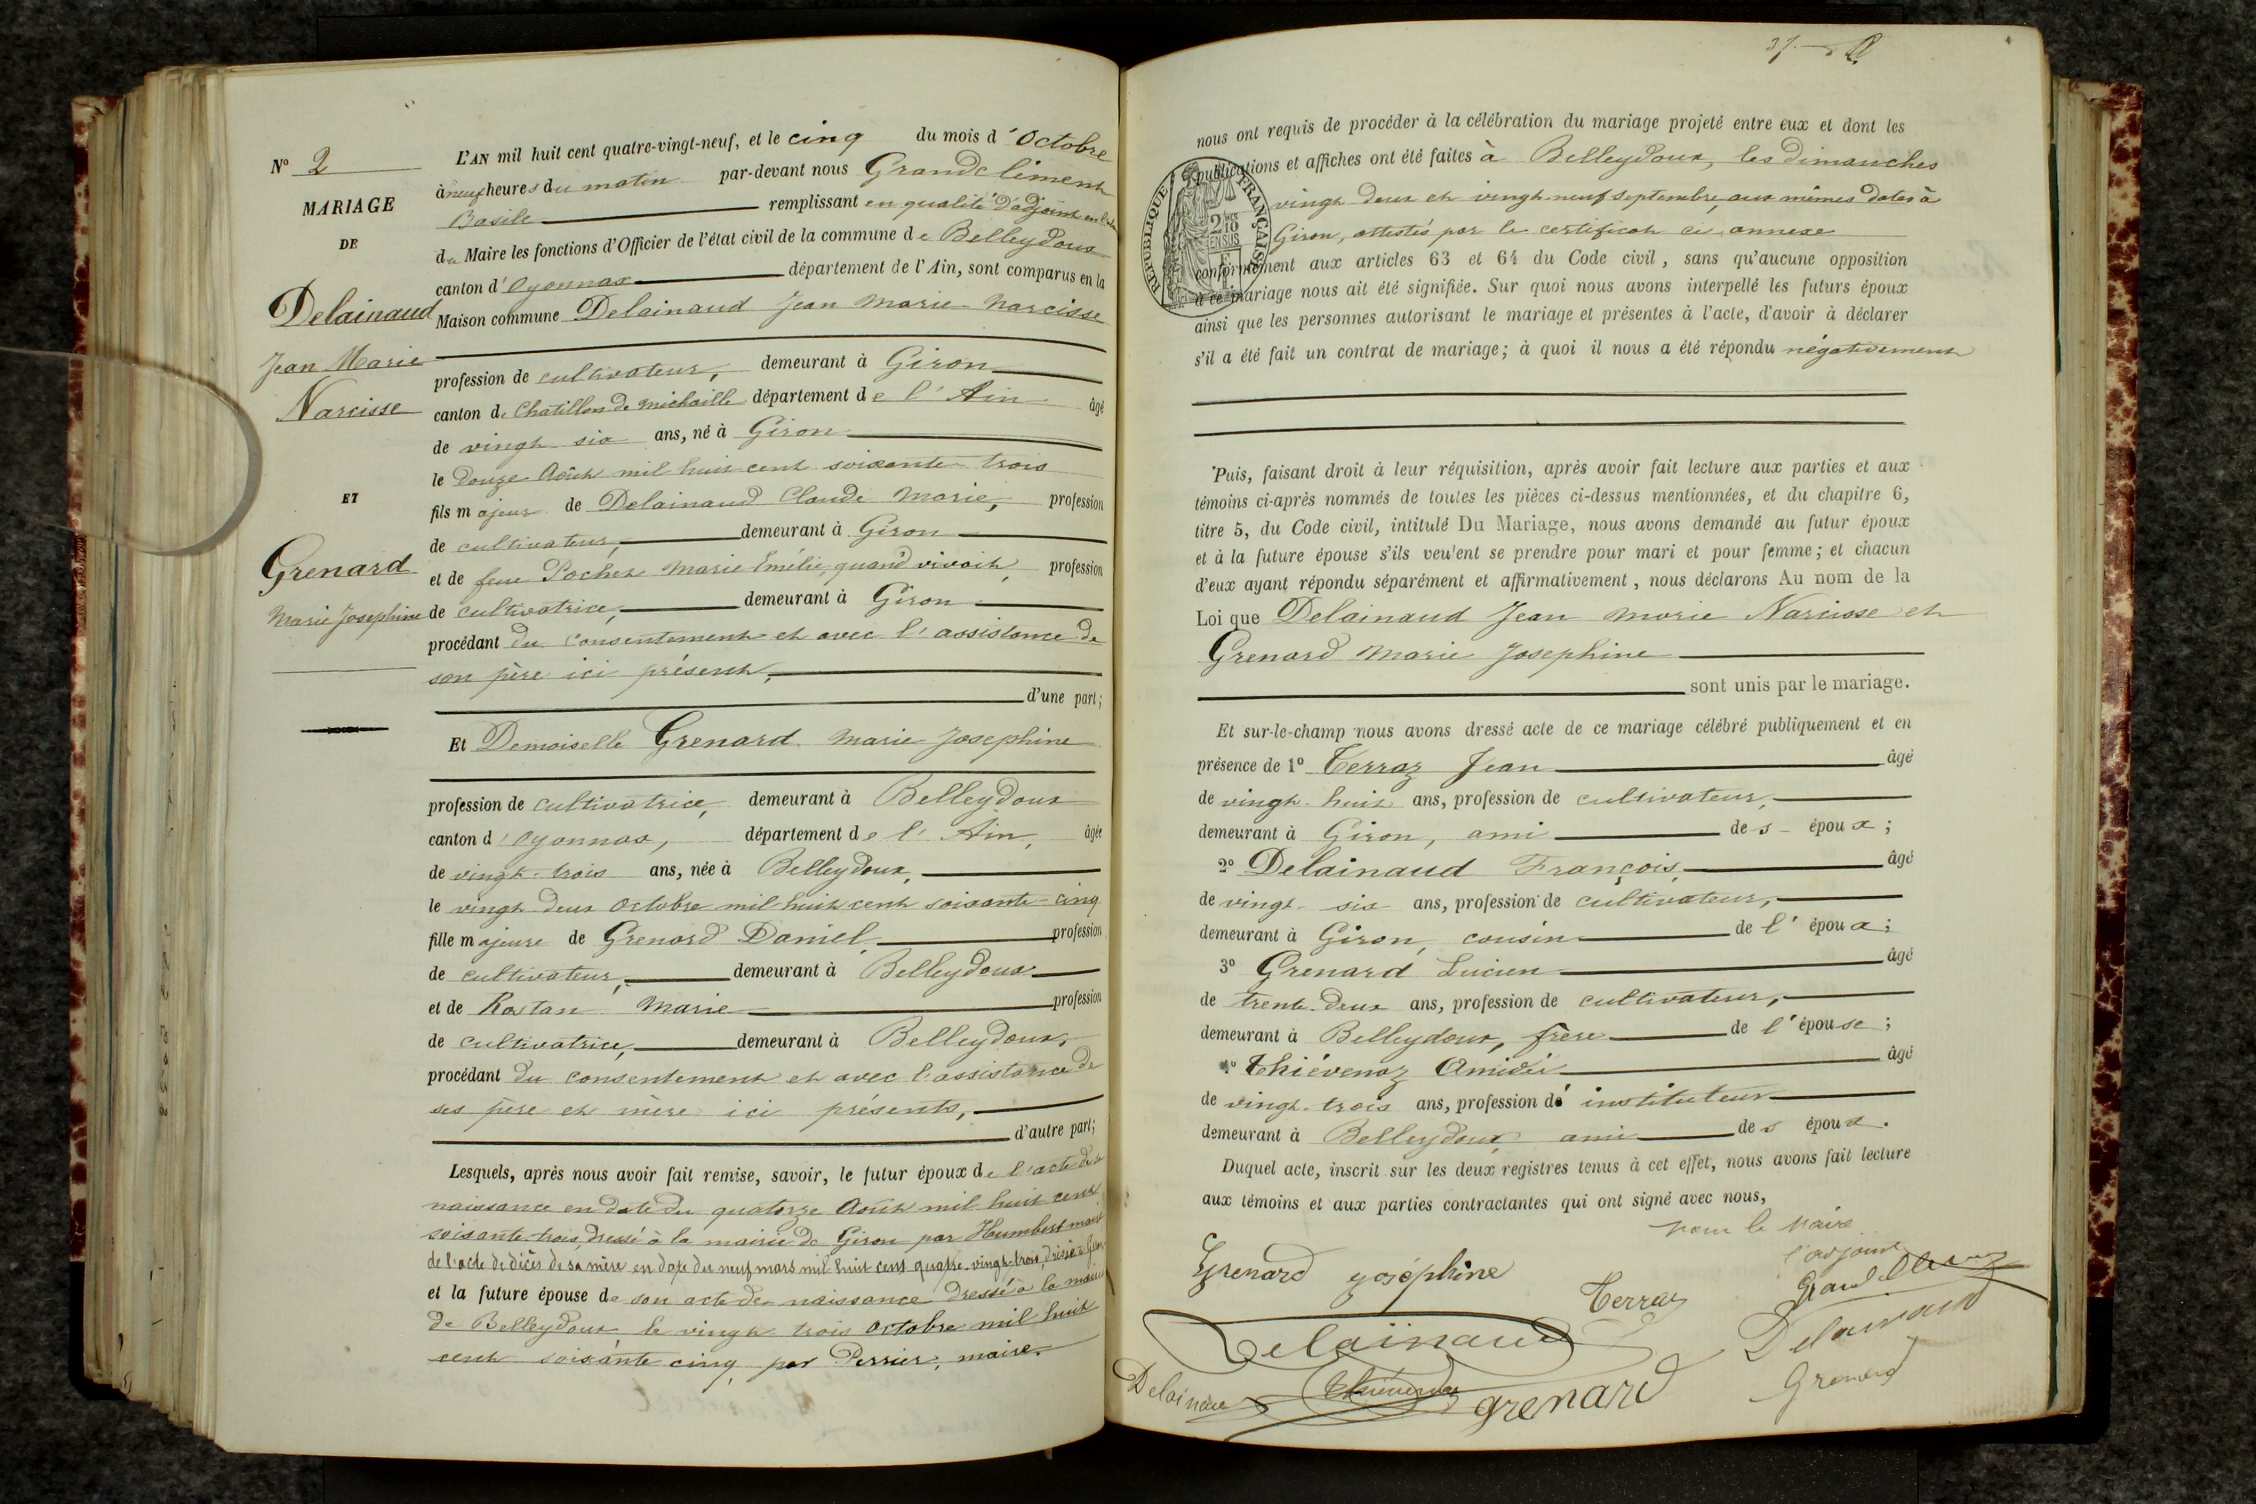 N° 2
MARIAGE
DE
Delainaud
Jean Marie
Narcisse
ET
Grenard
Marie Josephine
L'AN mil huit cent quatre-vingt-neuf, et le cinq du mois d'Octobre
à neuf heures du matin par-devant nous Grandclément
Basile remplissant en qualité d'adjoint
du Maire les fonctions d'Officier de l'état civil de la commune de Belleydoux
canton d'Oyonnax département de l'Ain, sont comparus en la
Maison commune Delainaud Jean Marie Narcisse
profession de cultivateur, demeurant à Giron
canton de Chatillon de Michaille département de l'Ain âgé
de vingt six ans, né à Giron
le douze Août mil huit cent soixante trois
fils majeur de Delainaud Claude Marie, profession
de cultivateur, demeurant à Giron
et de feue Pochet Marie Emélie, quand vivait, profession
de cultivatrice, demeurant à Giron
procédant du consentement et avec l'assistance de
son père ici présent,
d'une part;
Et Demoiselle Grenard Marie Josephine
profession de cultivatrice, demeurant à Belleydoux
canton d'Oyonnax, département de l'Ain, âgée
de vingt-trois ans, née à Belleydoux,
le vingt deux Octobre mil huit cent soixante-cinq
fille majeure de Grenard Daniel, profession
de cultivateur, demeurant à Belleydoux
et de Rostan Marie profession
de cultivatrice, demeurant à Belleydoux,
procédant du consentement et avec l'assistance de
ses père et mère ici présents,
d'autre part;
Lesquels, après nous avoir fait remise, savoir, le futur époux de l'acte de
naissance en date du quatorze Août mil huit cent
soixante trois, dressé à la mairie de Giron par Humbert maire
de l'acte de décès de sa mère en date du neuf mars mil huit cent quatre-vingt-trois, dressé à Giron
et la future épouse de son acte de naissance dressé à la mairie
de Belleydoux, le vingt trois Octobre mil huit
cent soixante cinq, par Perrier, maire.
37
RÉPUBLIQUE FRANÇAISE
nous ont requis de procéder à la célébration du mariage projeté entre eux et dont les
publications et affiches ont été faites à Belleydoux, les dimanches
vingt deux et vingt-neuf septembre, aux mêmes dates à
Giron, attestés par le certificat ci annexé
conformément aux articles 63 et 64 du Code civil, sans qu'aucune opposition
à ce mariage nous ait été signifiée. Sur quoi nous avons interpellé les futurs époux
ainsi que les personnes autorisant le mariage et présentes à l'acte, d'avoir à déclarer
s'il a été fait un contrat de mariage; à quoi il nous a été répondu négativement
Puis, faisant droit à leur réquisition, après avoir fait lecture aux parties et aux
témoins ci-après nommés de toutes les pièces ci-dessus mentionnées, et du chapitre 6,
titre 5, du Code civil, intitulé Du Mariage, nous avons demandé au futur époux
et à la future épouse s'ils veulent se prendre pour mari et pour femme; et chacun
d'eux ayant répondu séparément et affirmativement, nous déclarons Au nom de la
Loi que Delainaud Jean Marie Narcisse et
Grenard Marie Josephine
sont unis par le mariage.
Et sur-le-champ nous avons dressé acte de ce mariage célébré publiquement et en
présence de 1° Terraz Jean âgé
de vingt-huit ans, profession de cultivateur,
demeurant à Giron, ami des époux;
2° Delainaud François, âgé
de vingt-six ans, profession de cultivateur,
demeurant à Giron, cousin de l'époux;
3° Grenard Lucien âgé
de trente-deux ans, profession de cultivateur,
demeurant à Belleydoux, frère de l'épouse;
4° Thiévenaz Amédé âgé
de vingt-trois ans, profession de instituteur
demeurant à Belleydoux, ami des époux.
Duquel acte, inscrit sur les deux registres tenus à cet effet, nous avons fait lecture
aux témoins et aux parties contractantes qui ont signé avec nous,
Pour le Maire
l'adjoint
Grenard Joséphine
Terraz
Delainaud
Delainaud
Delainaud
Thiévenaz
Grenard
Grenard